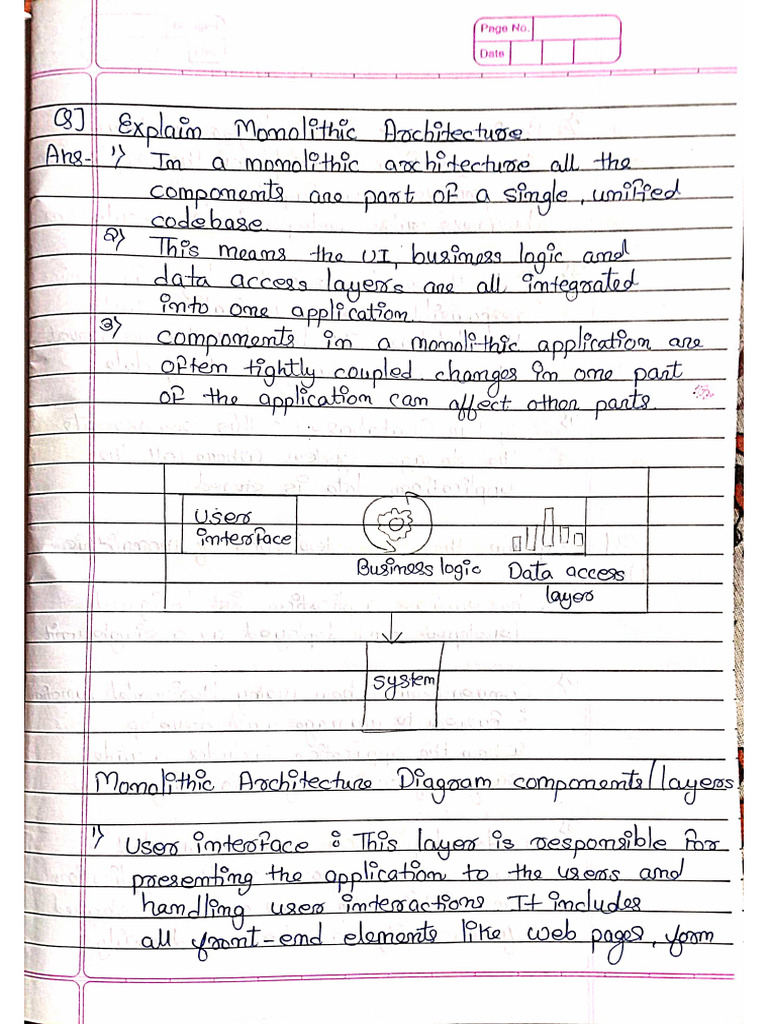 Page No.
Date
Q] Explain Monolithic Architecture
Ans- 1) In a monolithic architecture all the
components are part of a single, unified
codebase.
2) This means the UI, business logic and
data access layers are all integrated
into one application.
3) components in a monolithic application are
often tightly coupled changes in one part
of the application can affect other parts.
User
interface
Business logic
Data access
layer
System
Monolithic Architecture Diagram components/layers
1) User interface : This layer is responsible for
presenting the application to the users and
handling user interactions It includes
all front-end elements like web pages, form